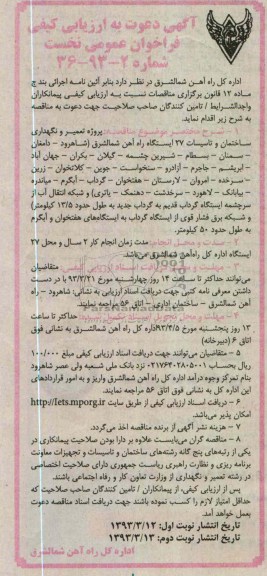 آگهی دعوت به ارزیابی کیفی
فراخوان عمومی نخست
شماره ۲-۹۳-۳۶
اداره کل راه آهن شمالشرق در نظر دارد بنابر آئین نامه اجرائی بند ج
ماده ۱۲ قانون برگزاری مناقصات نسبت به ارزیابی کیفی پیمانکاران
واجدالشرایط / تامین کنندگان صاحب صلاحیت جهت دعوت به مناقصه
به شرح زیر اقدام نماید.
۱ - شرح مختصر موضوع مناقصه: پروژه تعمیر و نگهداری
ساختمان و تاسیسات ۲۷ ایستگاه راه آهن شمالشرق (شاهرود - دامغان
- سمنان - بسطام - شیرین چشمه - گیلان - بکران - جهان آباد
- ابریشم - جاجرم - آزادرو - سنخواست - جوین - کلاتخوزان - زرین
- سرخده - امروان - لارستان - هفتخوان - گرداب - آبگرم - میاندره
- بیابانک - لاهورد - سرخدشت - دهنمک - یاتری) و شبکه انتقال آب از
سرچشمه ایستگاه گرداب قدیم به گرداب جدید به طول حدود ۱۳/۵ کیلومتر)
و شبکه برق فشار قوی از ایستگاه گرداب به ایستگاههای هفتخوان و آبگرم
به طول حدود ۵۰ کیلومتر.
۲ - مدت و محل انجام کار: مدت زمان انجام کار ۲ سال و محل ۲۷
ایستگاه اداره کل راه‌آهن شمالشرق می‌باشد.
۳ - مهلت و محل دریافت اسناد ارزیابی کیفی: متقاضیان
می‌توانند حداکثر تا ساعت ۱۴ روز چهارشنبه مورخ ۹۳/۳/۲۱ با در دست
داشتن معرفی نامه کتبی جهت دریافت اسناد ارزیابی به نشانی: شاهرود - راه
آهن شمالشرق - ساختمان اداری - اتاق ۵۶ مراجعه نمایند.
۴ - مهلت و محل تحویل اسناد تکمیل شده: حداکثر تا ساعت
۱۳ روز پنجشنبه مورخ ۹۳/۴/۵ اداره کل راه آهن شمالشرق به نشانی فوق
اتاق ۶ (دبیرخانه)
۵ - متقاضیان می‌توانند جهت دریافت اسناد ارزیابی کیفی مبلغ ۱۰۰/۰۰۰
ریال بحساب ۲۱۷۶۴۰۲۸۰۵۰۰۱ نزد بانک ملی شعبه ولی عصر شاهرود
بنام تمرکز وجوه درآمد اداره کل راه آهن شمالشرق واریز و به امور قراردادهای
این اداره کل به نشانی فوق اتاق ۵۶ مراجعه نمایند.
۶ - دریافت اسناد ارزیابی کیفی از طریق سایت http://Iets.mporg.ir
امکان پذیر می‌باشد.
۷ - هزینه نشر آگهی از برنده مناقصه اخذ می‌گردد.
۸ - مناقصه گران می‌بایست علاوه بر دارا بودن صلاحیت پیمانکاری در
یکی از رتبه‌های پنج گانه رشته‌های ساختمان و تاسیسات و تجهیزات معاونت
برنامه ریزی و نظارت راهبری ریاست جمهوری دارای صلاحیت اختصاصی
در رشته تعمیر و نگهداری از وزارت تعاون کار و رفاه اجتماعی باشند.
پس از ارزیابی کیفی، از پیمانکاران / تامین کنندگان صاحب صلاحیت که
حداقل امتیاز لازم را کسب نموده باشند جهت دریافت اسناد مناقصه دعوت
بعمل خواهد آمد.
تاریخ انتشار نوبت اول: ۱۳۹۳/۳/۱۲
تاریخ انتشار نوبت دوم: ۱۳۹۳/۳/۱۳
اداره کل راه آهن شمالشرق